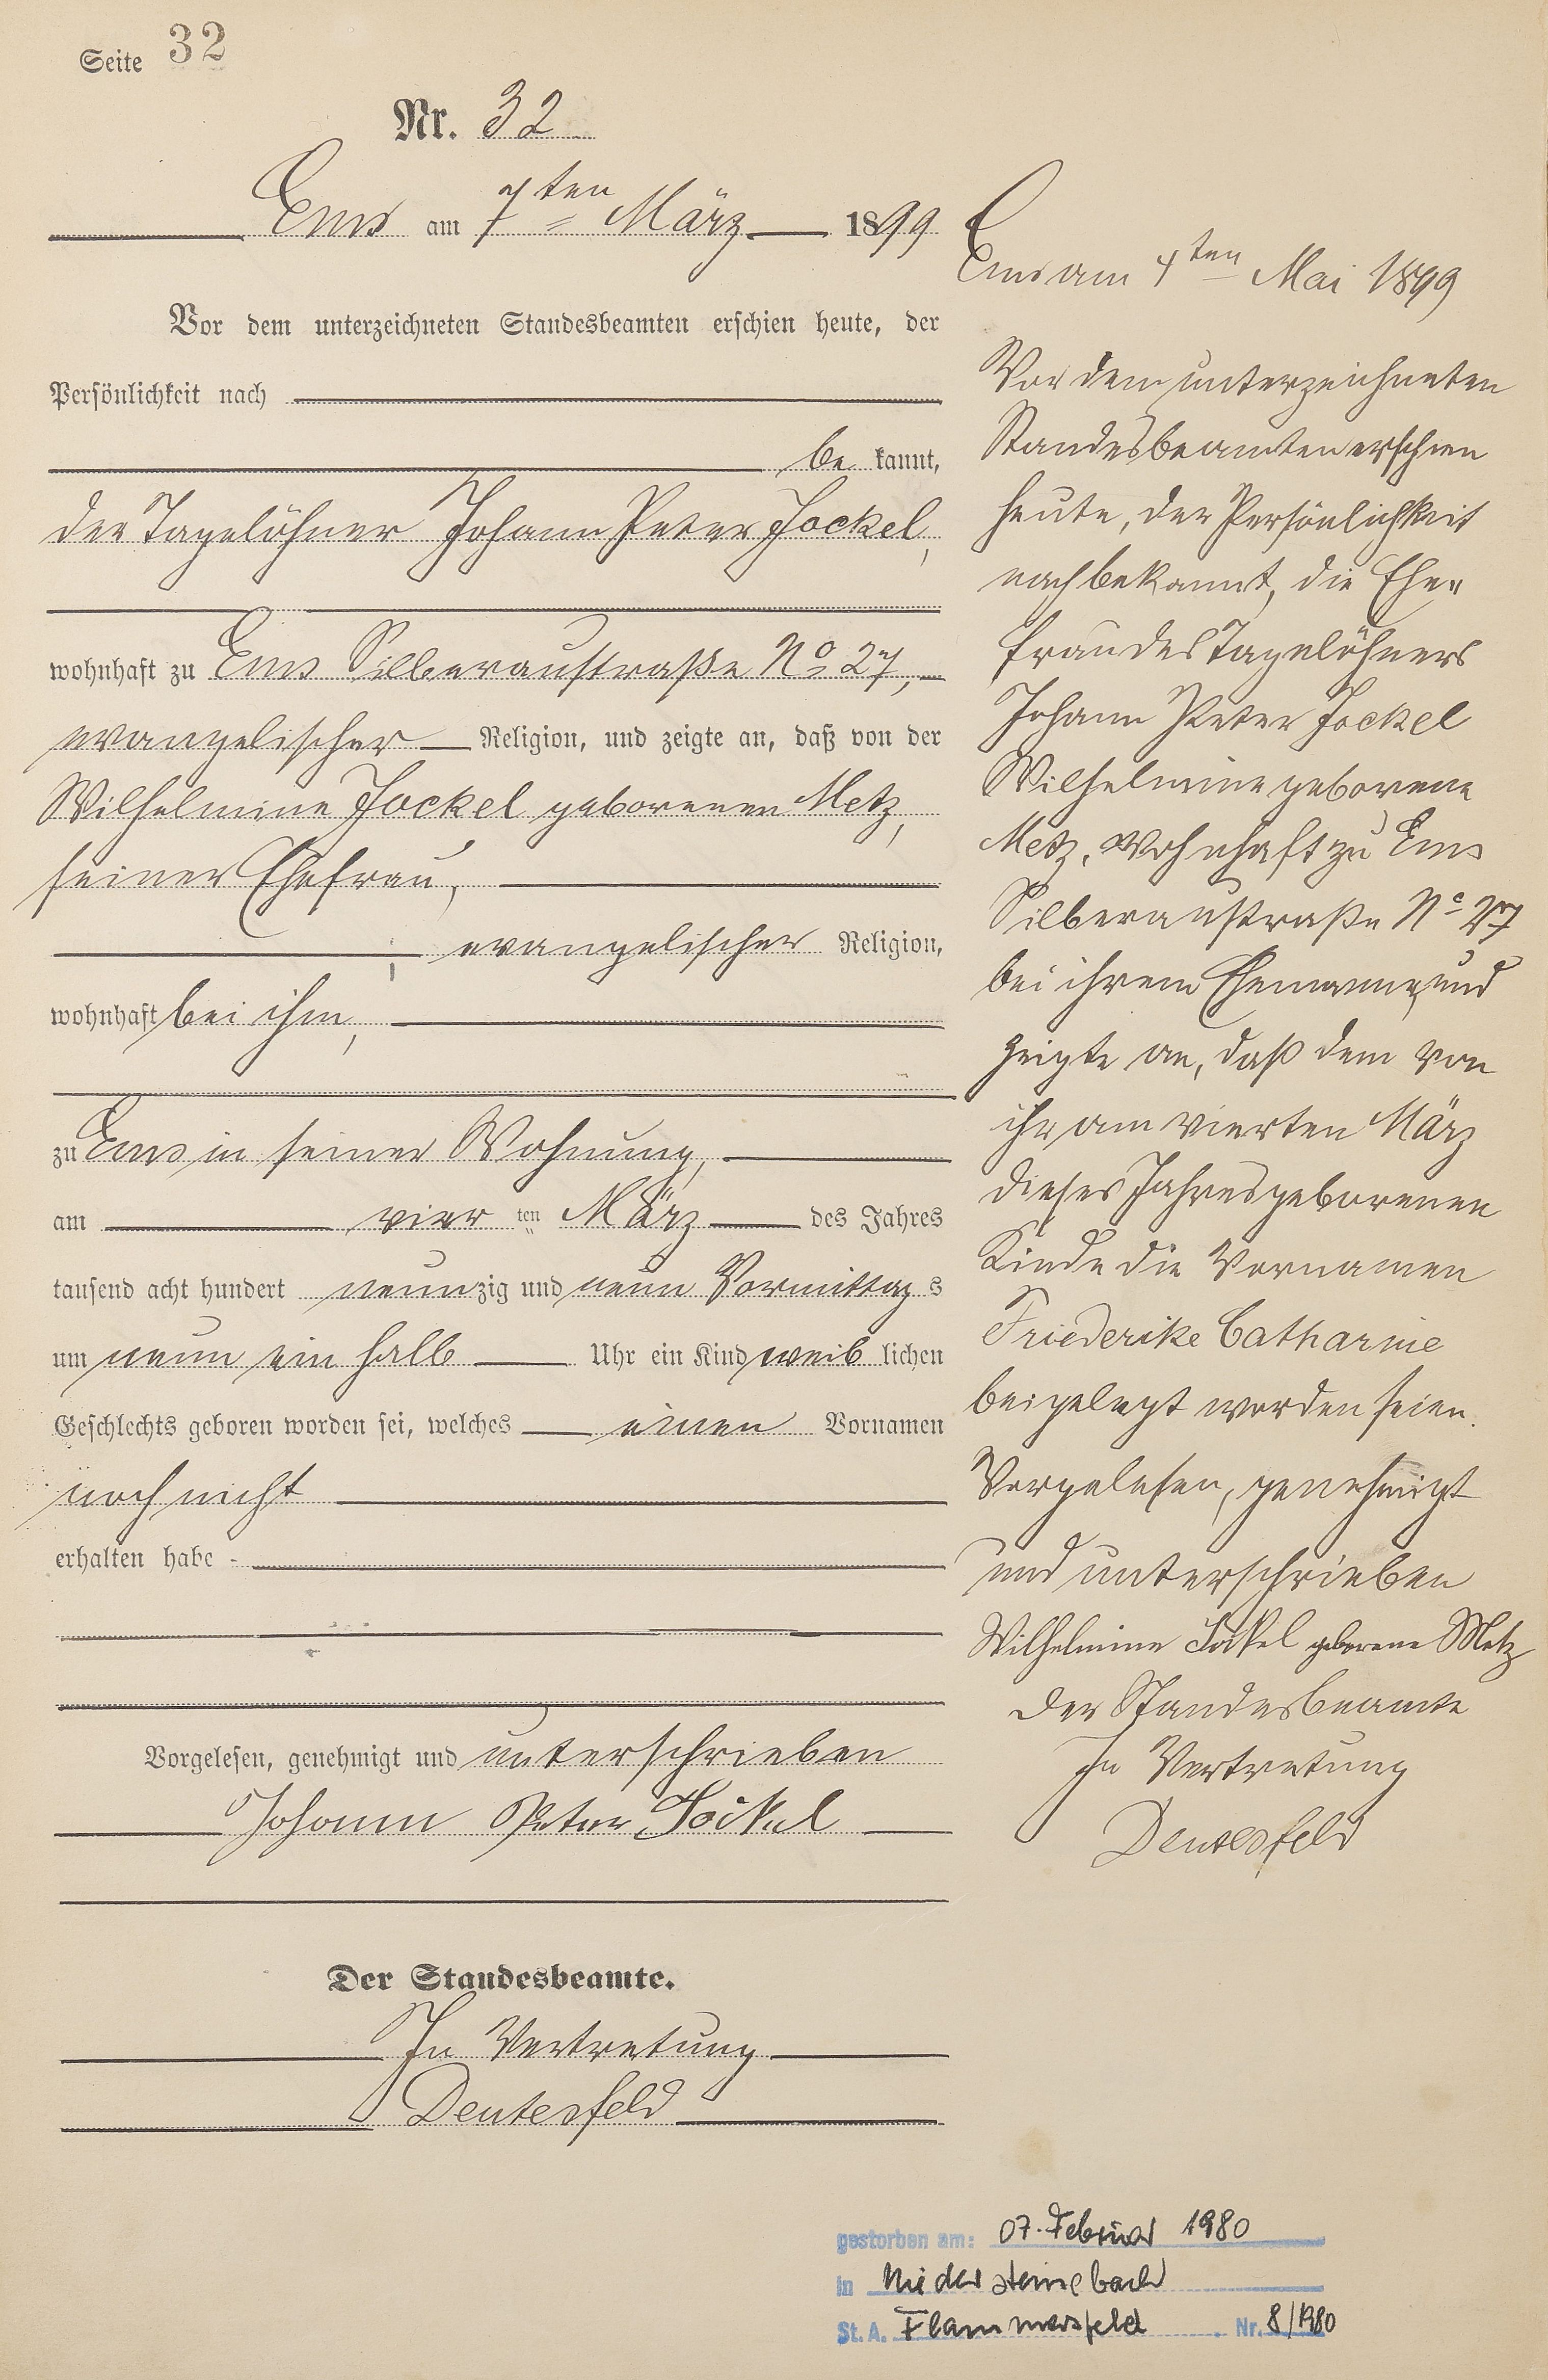 Seite 32
Nr. 32
Ems am 7ten März 1899
Vor dem unterzeichneten Standesbeamten erschien heute, der
Persönlichkeit nach
be kannt,
der Tagelöhner Johann Peter Jockel,
wohnhaft zu Ems Silberaustraße No 27,
evangelischer Religion, und zeigte an, daß von der
Wilhelmine Jockel geborenen Metz,
seiner Ehefrau,
evangelischer Religion,
wohnhaft bei ihm,
zu Ems in seiner Wohnung,
am vier ten März des Jahres
tausend acht hundert neunzig und neun Vormittag s
um neun ein halb Uhr ein Kind weib lichen
Geschlechts geboren worden sei, welches einen Vornamen
noch nicht
erhalten habe
Vorgelesen, genehmigt und unterschrieben
Johann Peter Jockel
Der Standesbeamte.
In Vertretung
Deutesfeld
Ems am 4ten Mai 1899
Vor dem unterzeichneten
Standesbeamten erschien
heute, der Persönlichkeit
nach bekannt, die Ehe-
frau des Tagelöhners
Johann Peter Jockel
Wilhelmine geborene
Metz, wohnhaft zu Ems
Silberaustraße No 27
bei ihrem Ehemanne, und
zeigte an, daß dem von
ihr am vierten März
dieses Jahres geborenen
Kinde die Vornamen
Friederike Catharine
beigelegt worden seien.
Vorgelesen, genehmigt
und unterschrieben
Wilhelmine Jockel geborene Metz
Der Standesbeamte
In Vertretung
Deutesfeld
gestorben am: 07. Februar 1980
in Niedersteinebach
St. A. Flammersfeld Nr. 8/1980